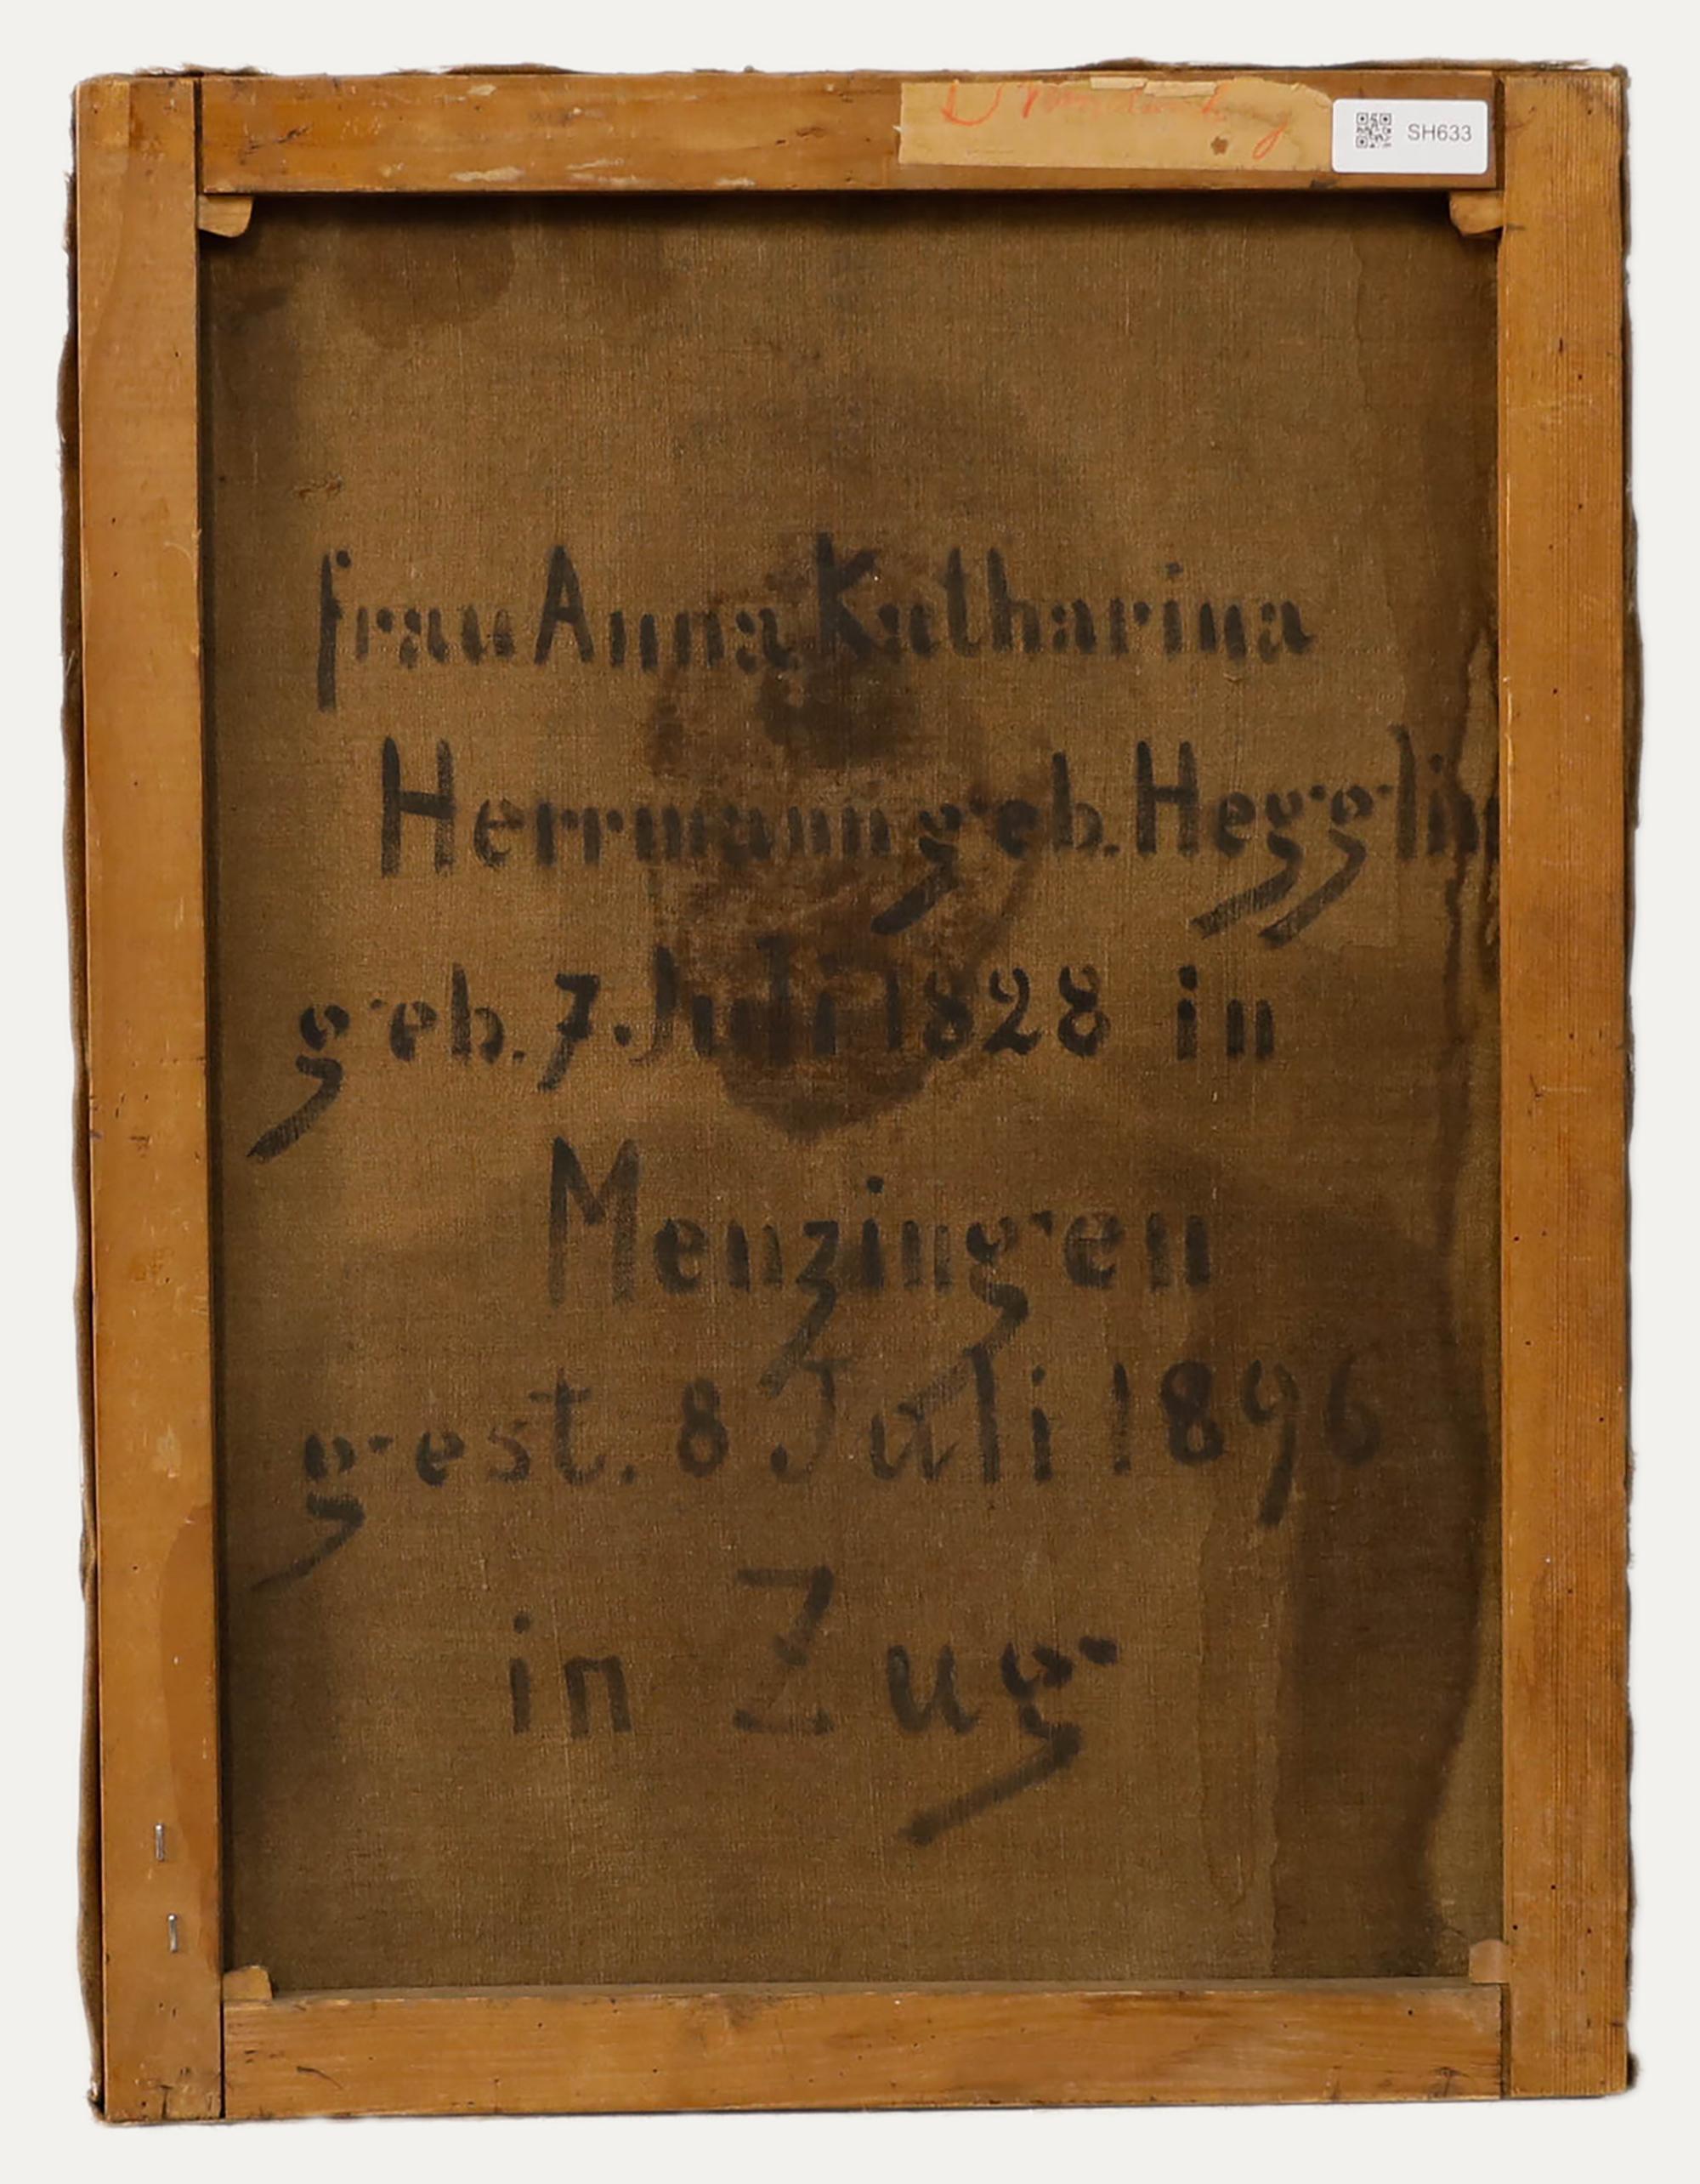 SH633
frau Anna Katharina
Herrmann geb. Hegglin
geb. 7. Juli 1828 in
Menzingen
gest. 8 Juli 1896
in Zug